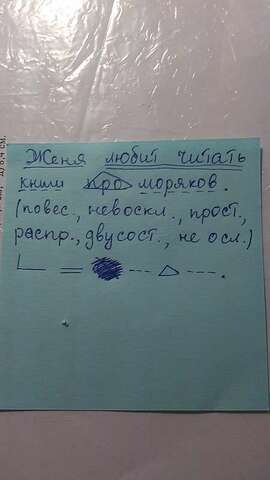 Женя любит читать
книги про моряков.
(повес., невоскл., прост.,
распр., двусост., не осл.)